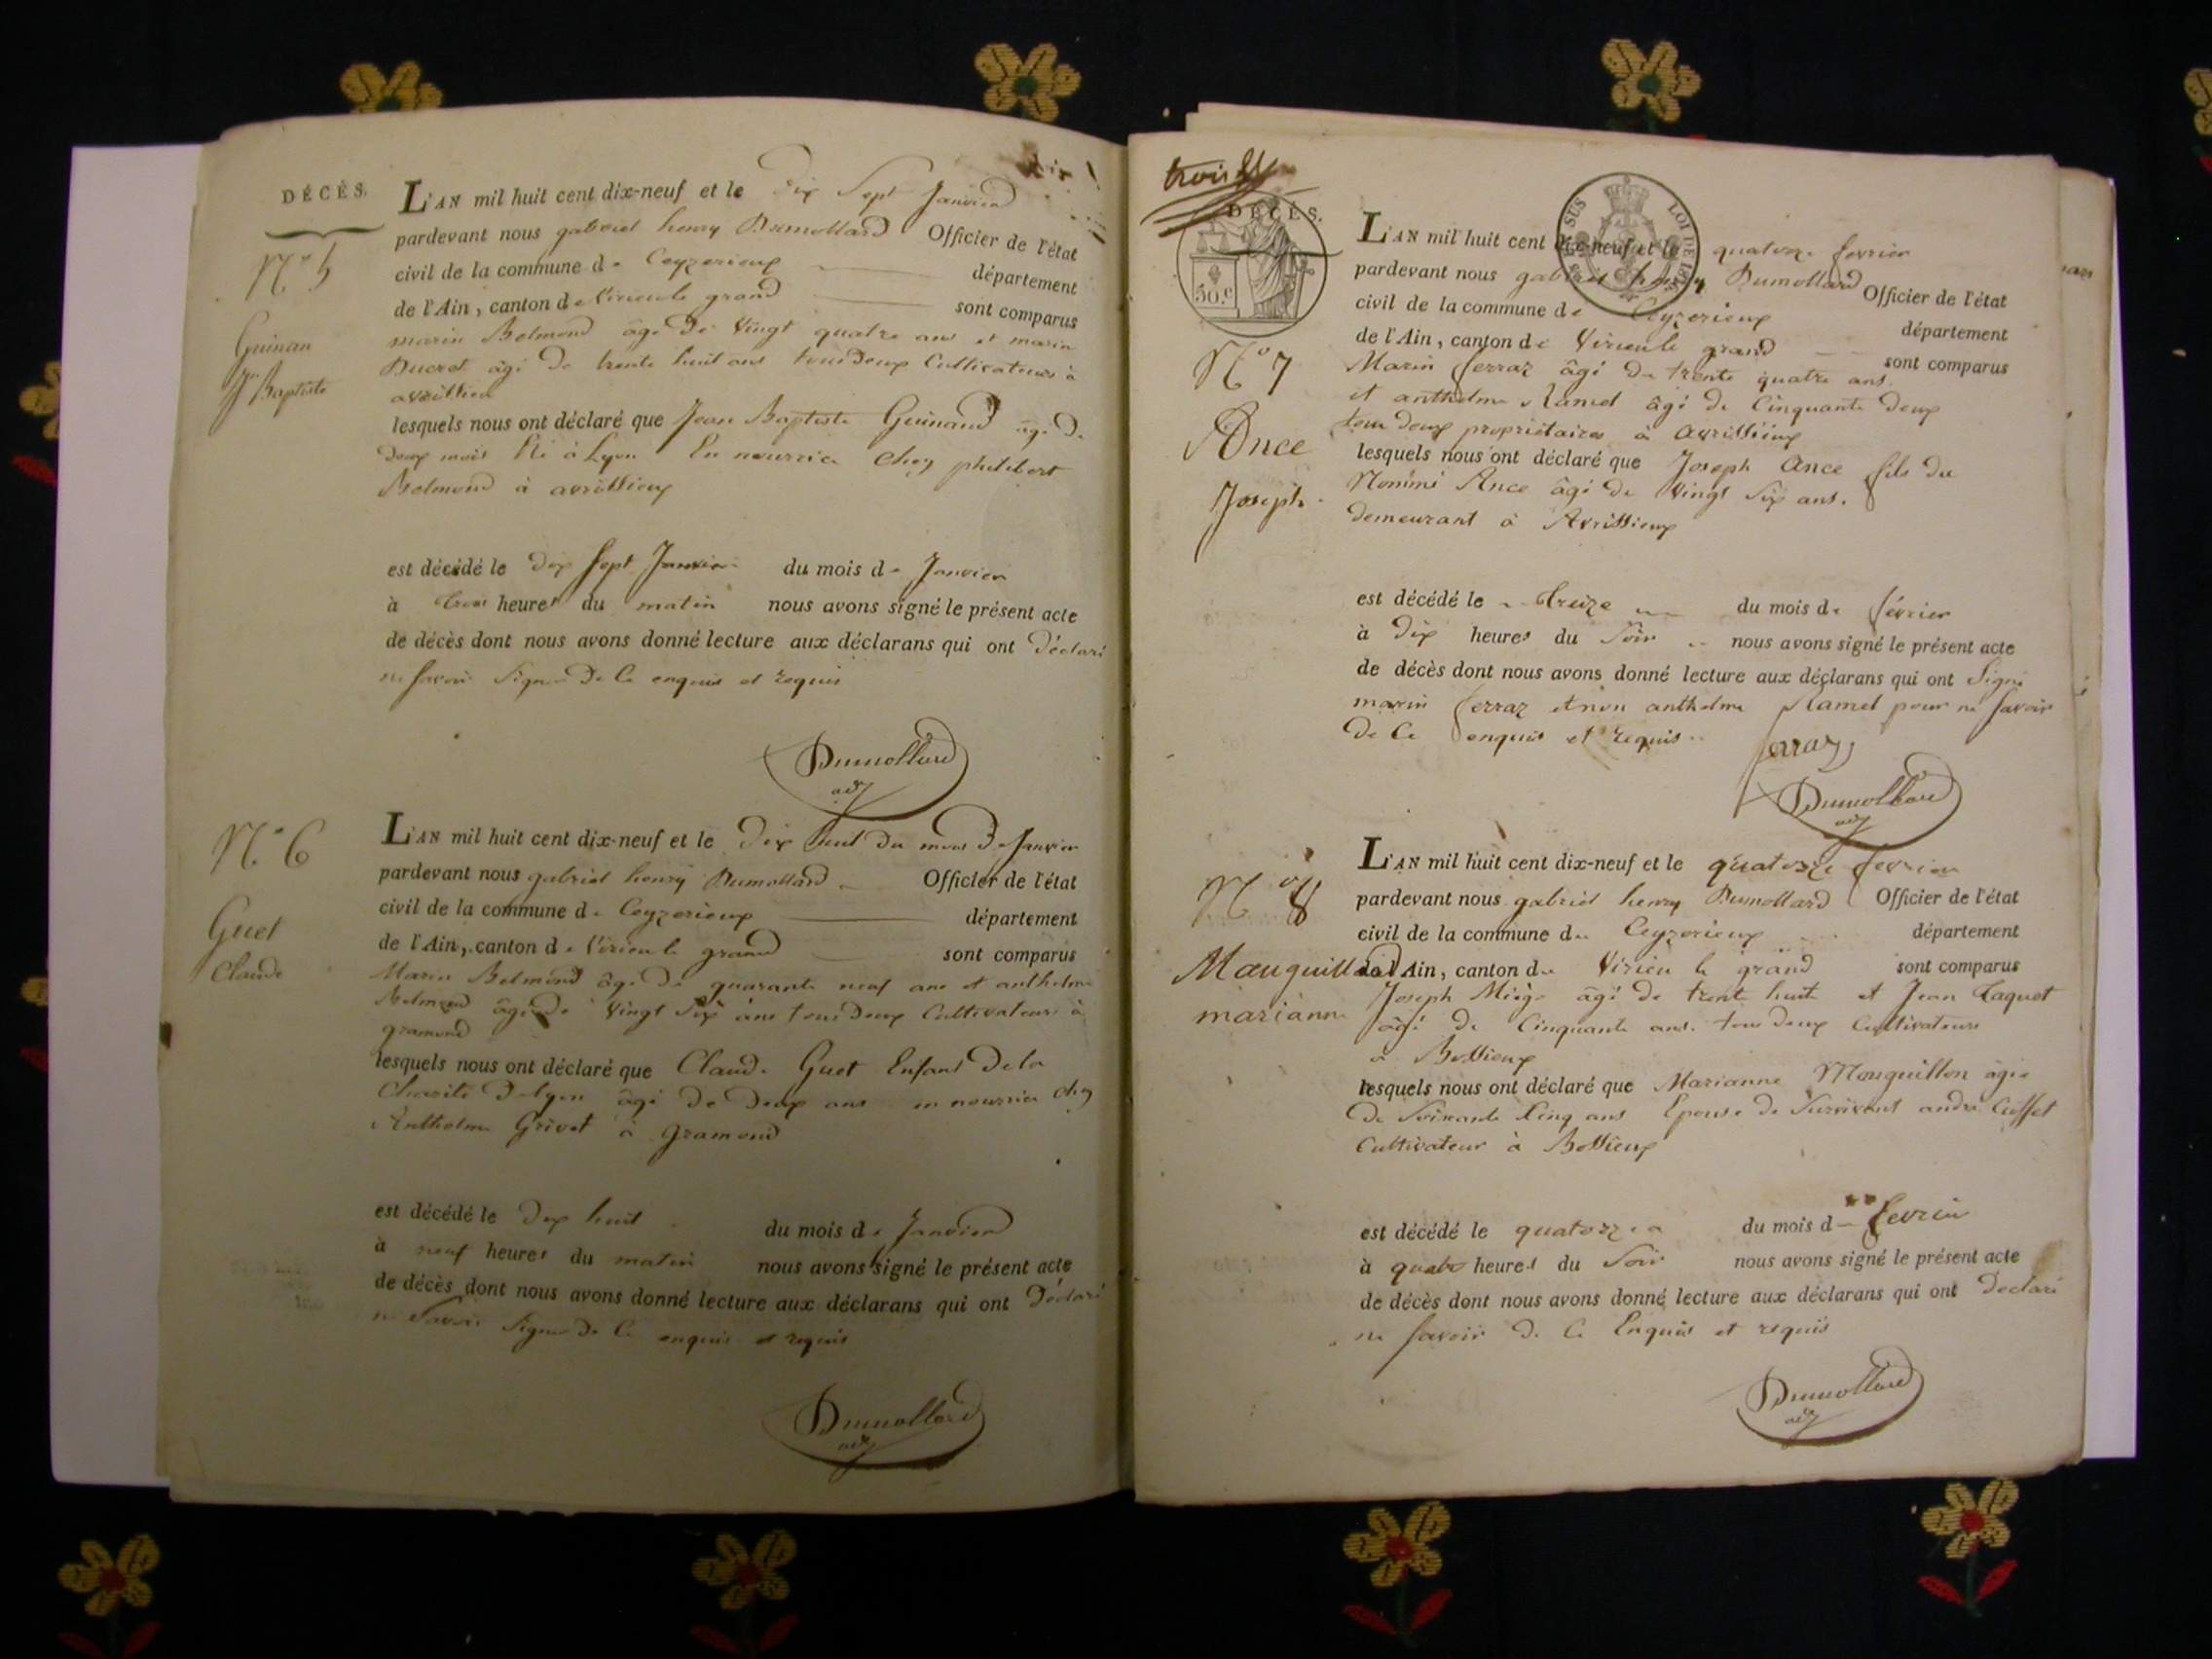 DÉCÈS.
N.° 5
Guinan
Jn Baptiste
L'AN mil huit cent dix-neuf et le dix Sept Janvier
pardevant nous gabriel henry Dumollard Officier de l'état
civil de la commune de Ceyzerieux département
de l'Ain, canton de Virieu le grand sont comparus
marin Belmond âgé de vingt quatre ans et marin
Ducret âgé de trente huit ans tous deux Cultivateurs à
avrissieu
lesquels nous ont déclaré que Jean Baptiste Guinand âgé de
deux mois né à Lyon En nourrice Chez philibert
Belmond à avrissieux
est décédé le dix Sept Janvier du mois de Janvier
à trois heures du matin nous avons signé le présent acte
de décès dont nous avons donné lecture aux déclarans qui ont Déclaré
ne savoir signer de Ce enquis et requis
Dumollard
adj
N.° 6
Guet
Claude
L'AN mil huit cent dix-neuf et le dix huit du mois de Janvier
pardevant nous gabriel henry Dumollard Officier de l'état
civil de la commune de Ceyzerieux département
de l'Ain, canton de Virieu le grand sont comparus
Marin Belmond âgé de quarante neuf ans et anthelme
Belmond âgé de vingt Six ans tous deux Cultivateurs à
gramond
lesquels nous ont déclaré que Claude Guet Enfant De la
Charité De lyon âgé de Deux ans en nourrice chez
Anthelme Grivet à gramond
est décédé le dix huit du mois de Janvier
à neuf heures du matin nous avons signé le présent acte
de décès dont nous avons donné lecture aux déclarans qui ont Déclaré
ne Savoir Signer de Ce enquis et requis
Dumollard
adj
trois
DÉCÈS.
50.c
LOI DE
N.° 7
Ance
Joseph
L'AN mil huit cent dix-neuf et le quatorze fevrier
pardevant nous gabriel henry Dumollard Officier de l'état
civil de la commune de Ceyzerieux département
de l'Ain, canton de Virieu le grand sont comparus
Marin ferraz âgé de trente quatre ans
et anthelme Ramel âgé de Cinquante deux
tous deux propriétaires à Avrissieux
lesquels nous ont déclaré que Joseph Ance fils du
Nommé Ance âgé de vingt Six ans.
demeurant à Avrissieux
est décédé le treize du mois de février
à dix heures du Soir nous avons signé le présent acte
de décès dont nous avons donné lecture aux déclarans qui ont Signé
marin ferraz et non anthelme Ramel pour ne Savoir
de Ce enquis et requis
ferraz
Dumollard
adj
N.° 8
Mauguillon
marianne
L'AN mil huit cent dix-neuf et le quatorze fevrier
pardevant nous gabriel henry Dumollard Officier de l'état
civil de la commune de Ceyzerieux département
de l'Ain, canton de Virieu le grand sont comparus
Joseph Miège âgé de trente huit et Jean Taquet
âgé de Cinquante ans. tous deux Cultivateurs
a Bossieux
lesquels nous ont déclaré que Marianne Mauguillon âgée
de Soixante Cinq ans Epouse de Survivant andré Cusset
Cultivateur à Bossieux
est décédé le quatorze du mois de fevrier
à quatre heures du Soir nous avons signé le présent acte
de décès dont nous avons donné lecture aux déclarans qui ont Déclaré
ne Savoir de Ce Enquis et requis
Dumollard
adj